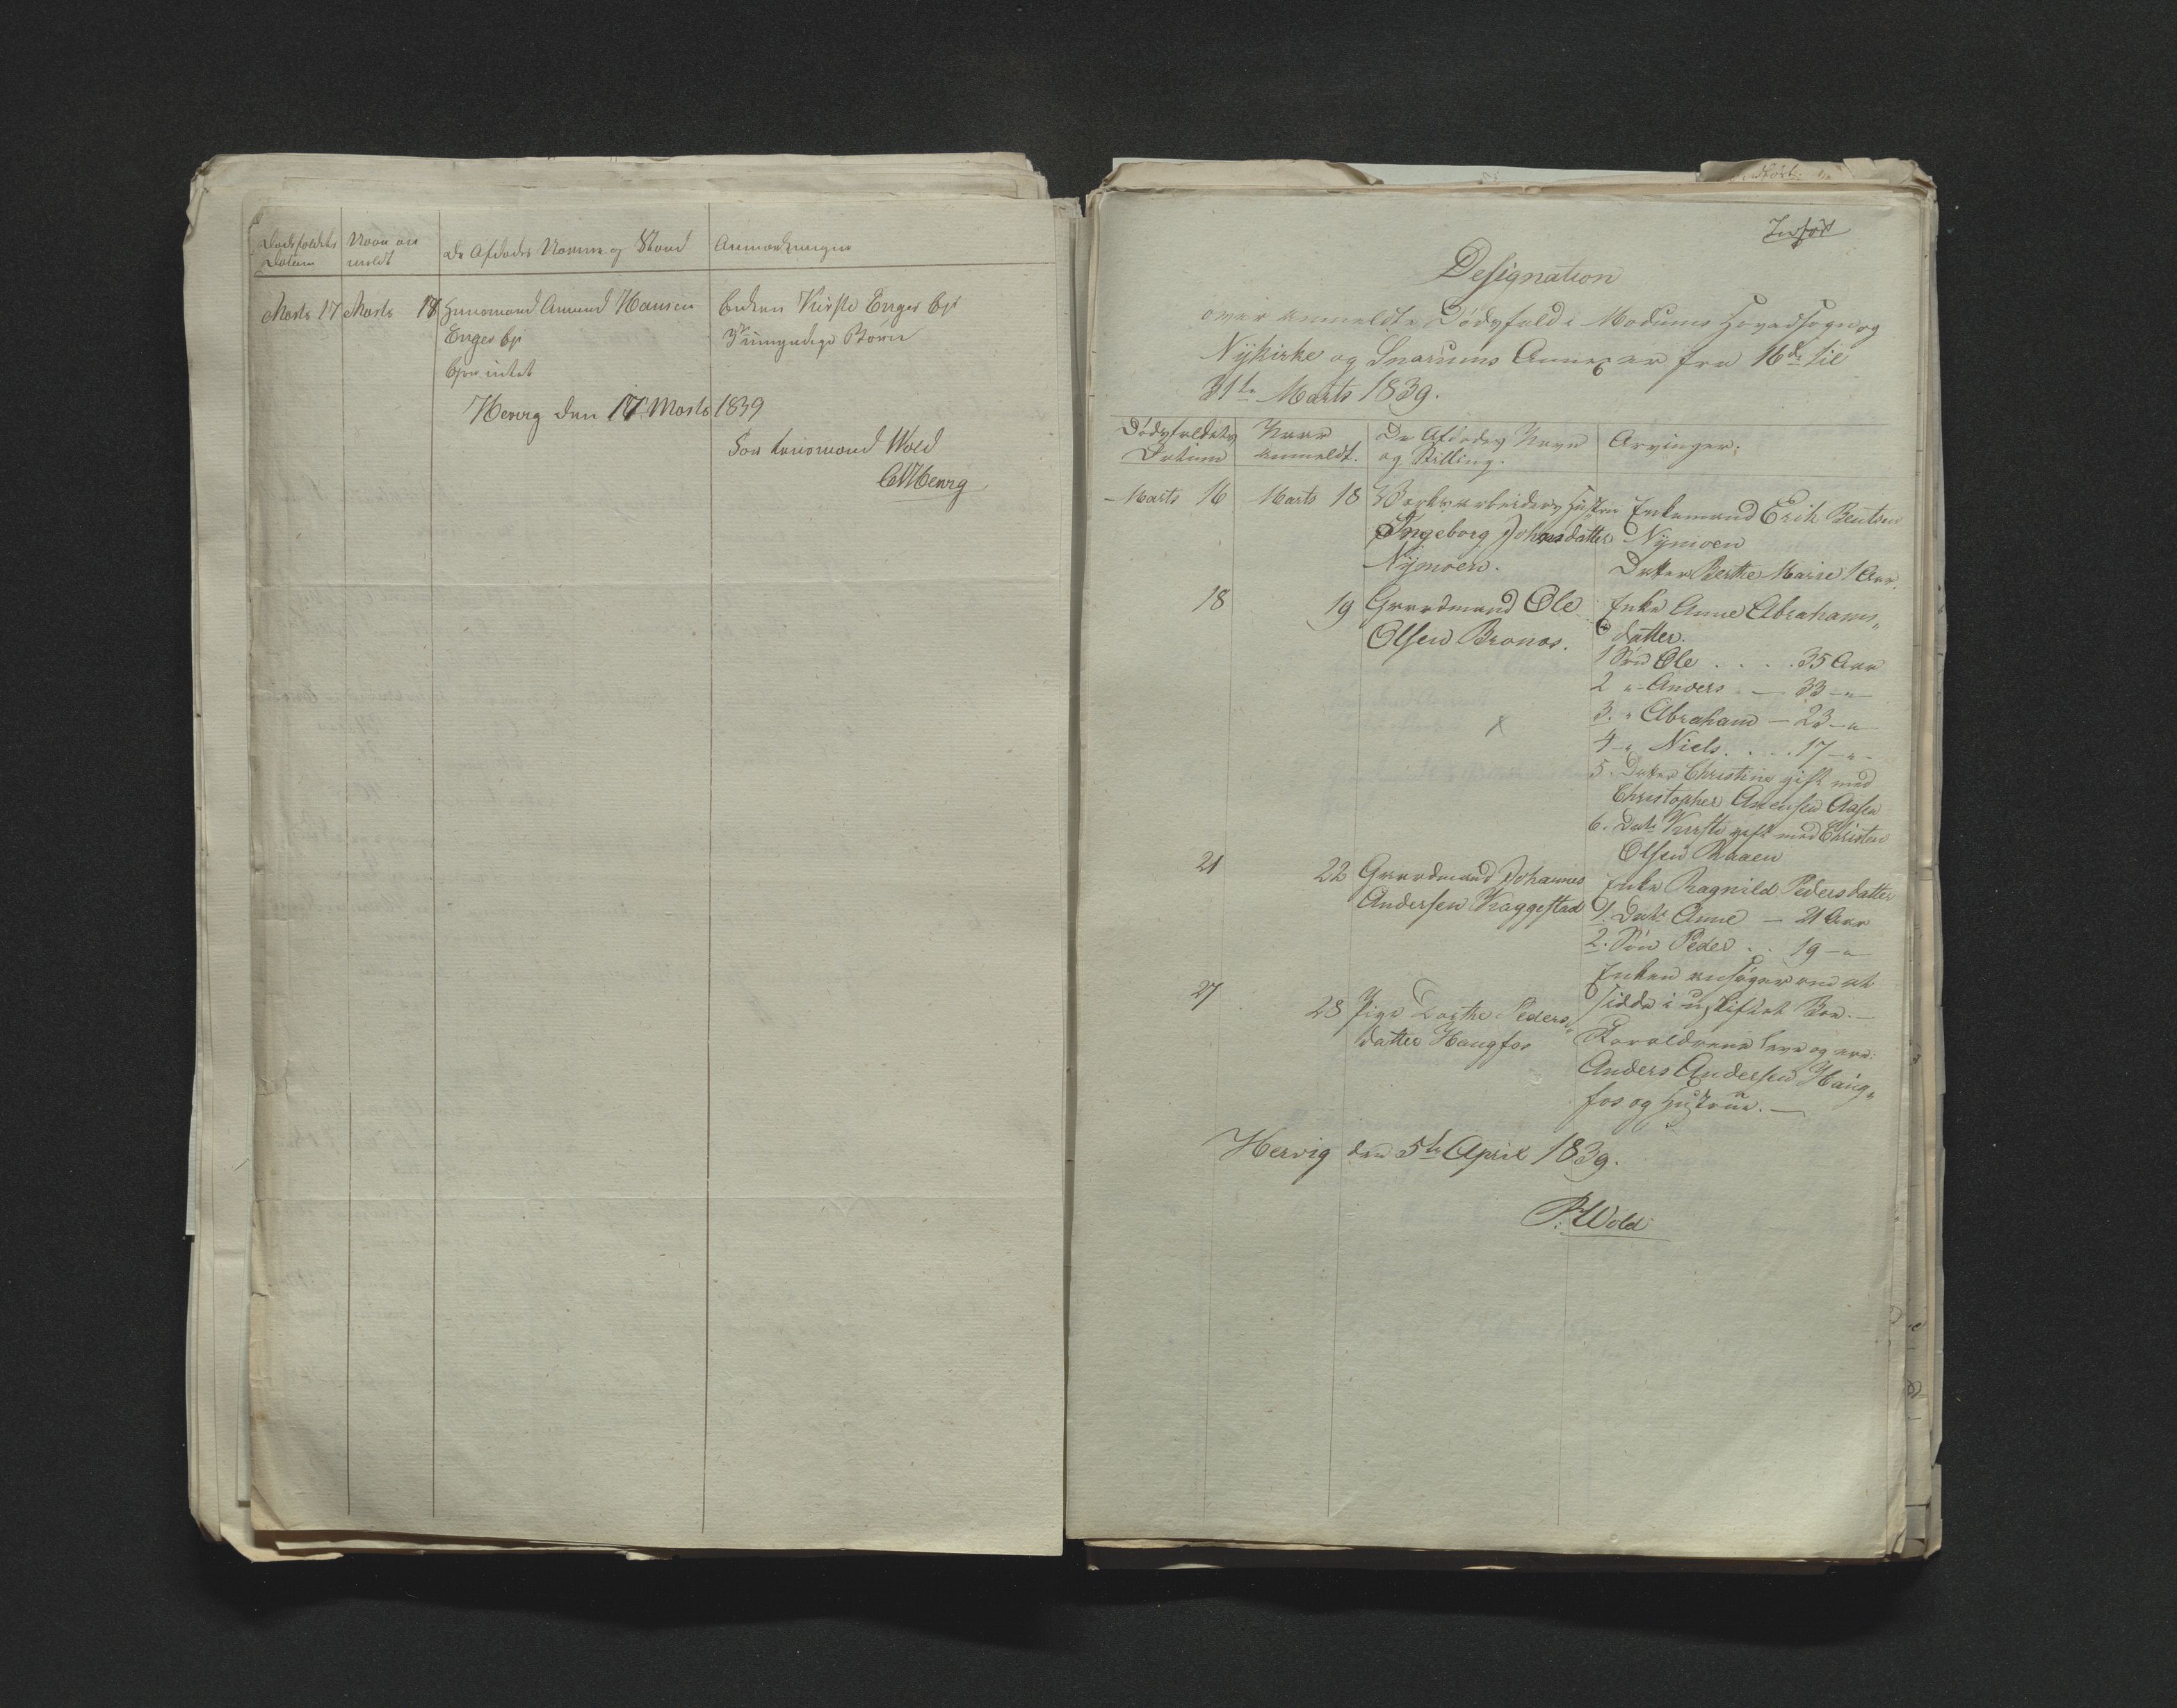 Dødsfaldets Datum
Naar anmeldt
De Afdødes Navne og Stand
Anmærkninger
Marts 17
Marts 18
Huusmand Amund Hansen
Enger Ejr
Ejer intet
Enken Kirsti Enger Ejr
3 umyndige Børn
Hervig den 17 Marts 1839
For Lensmand Wold
Indført
Designation
over anmeldte Dødsfald i Modums Hovedsogn og
Nykirke og Snarums Annexer fra 16de til
31te Marts 1839.
Dødsfaldets Datum
Naar anmeldt.
De Afdødes Navn og Stilling.
Arvinger.
Marts 16
Marts 18
Værksarbeiders Hustru
Ingeborg Johnsdatter
Nymoen.
Enkemand Erik Bentsen
Nymoen
Datter Berthe Marie 1 Aar.
18
19
Gaardmand Ole
Olsen Bronos.
Enke Anne Abrahams„
datter.
1 Søn Ole . . . . 35 Aar
2 „ Anders — 33 —„—
3. „ Abraham — 23 —„
4 „ Niels . . . . 17 —„—
5. Datter Christine gift med
Christopher Anensen Aasen
6. Datr Kirsti gift med Christen
Olsen Braaen
21
22
Gaardmand Johannes
Andersen Kaggestad
Enke Ragnild Pedersdatter
1. Datr Anne — 21 Aar
2. Søn Peder . . 19 —„—
Enken ansøger om at
sidde i uskiftet Boe.—
27
28
Pige Dorthe Peders„
datter Haugfos
Foræld­rene leve og ere:
Anders Andersen Haug„
fos og Hustrue.—
Hervig den 5te April 1839.
P. Wold